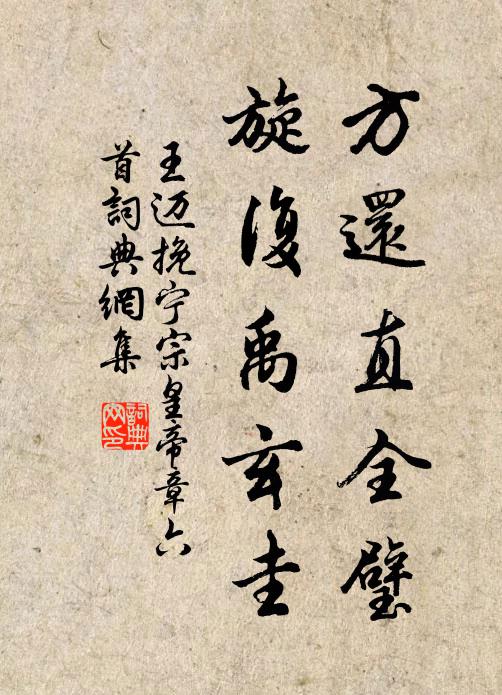 方還直全璧
旋復禹玄圭
王迈挽宁宗皇帝章六
首詞典網集
詞典网印